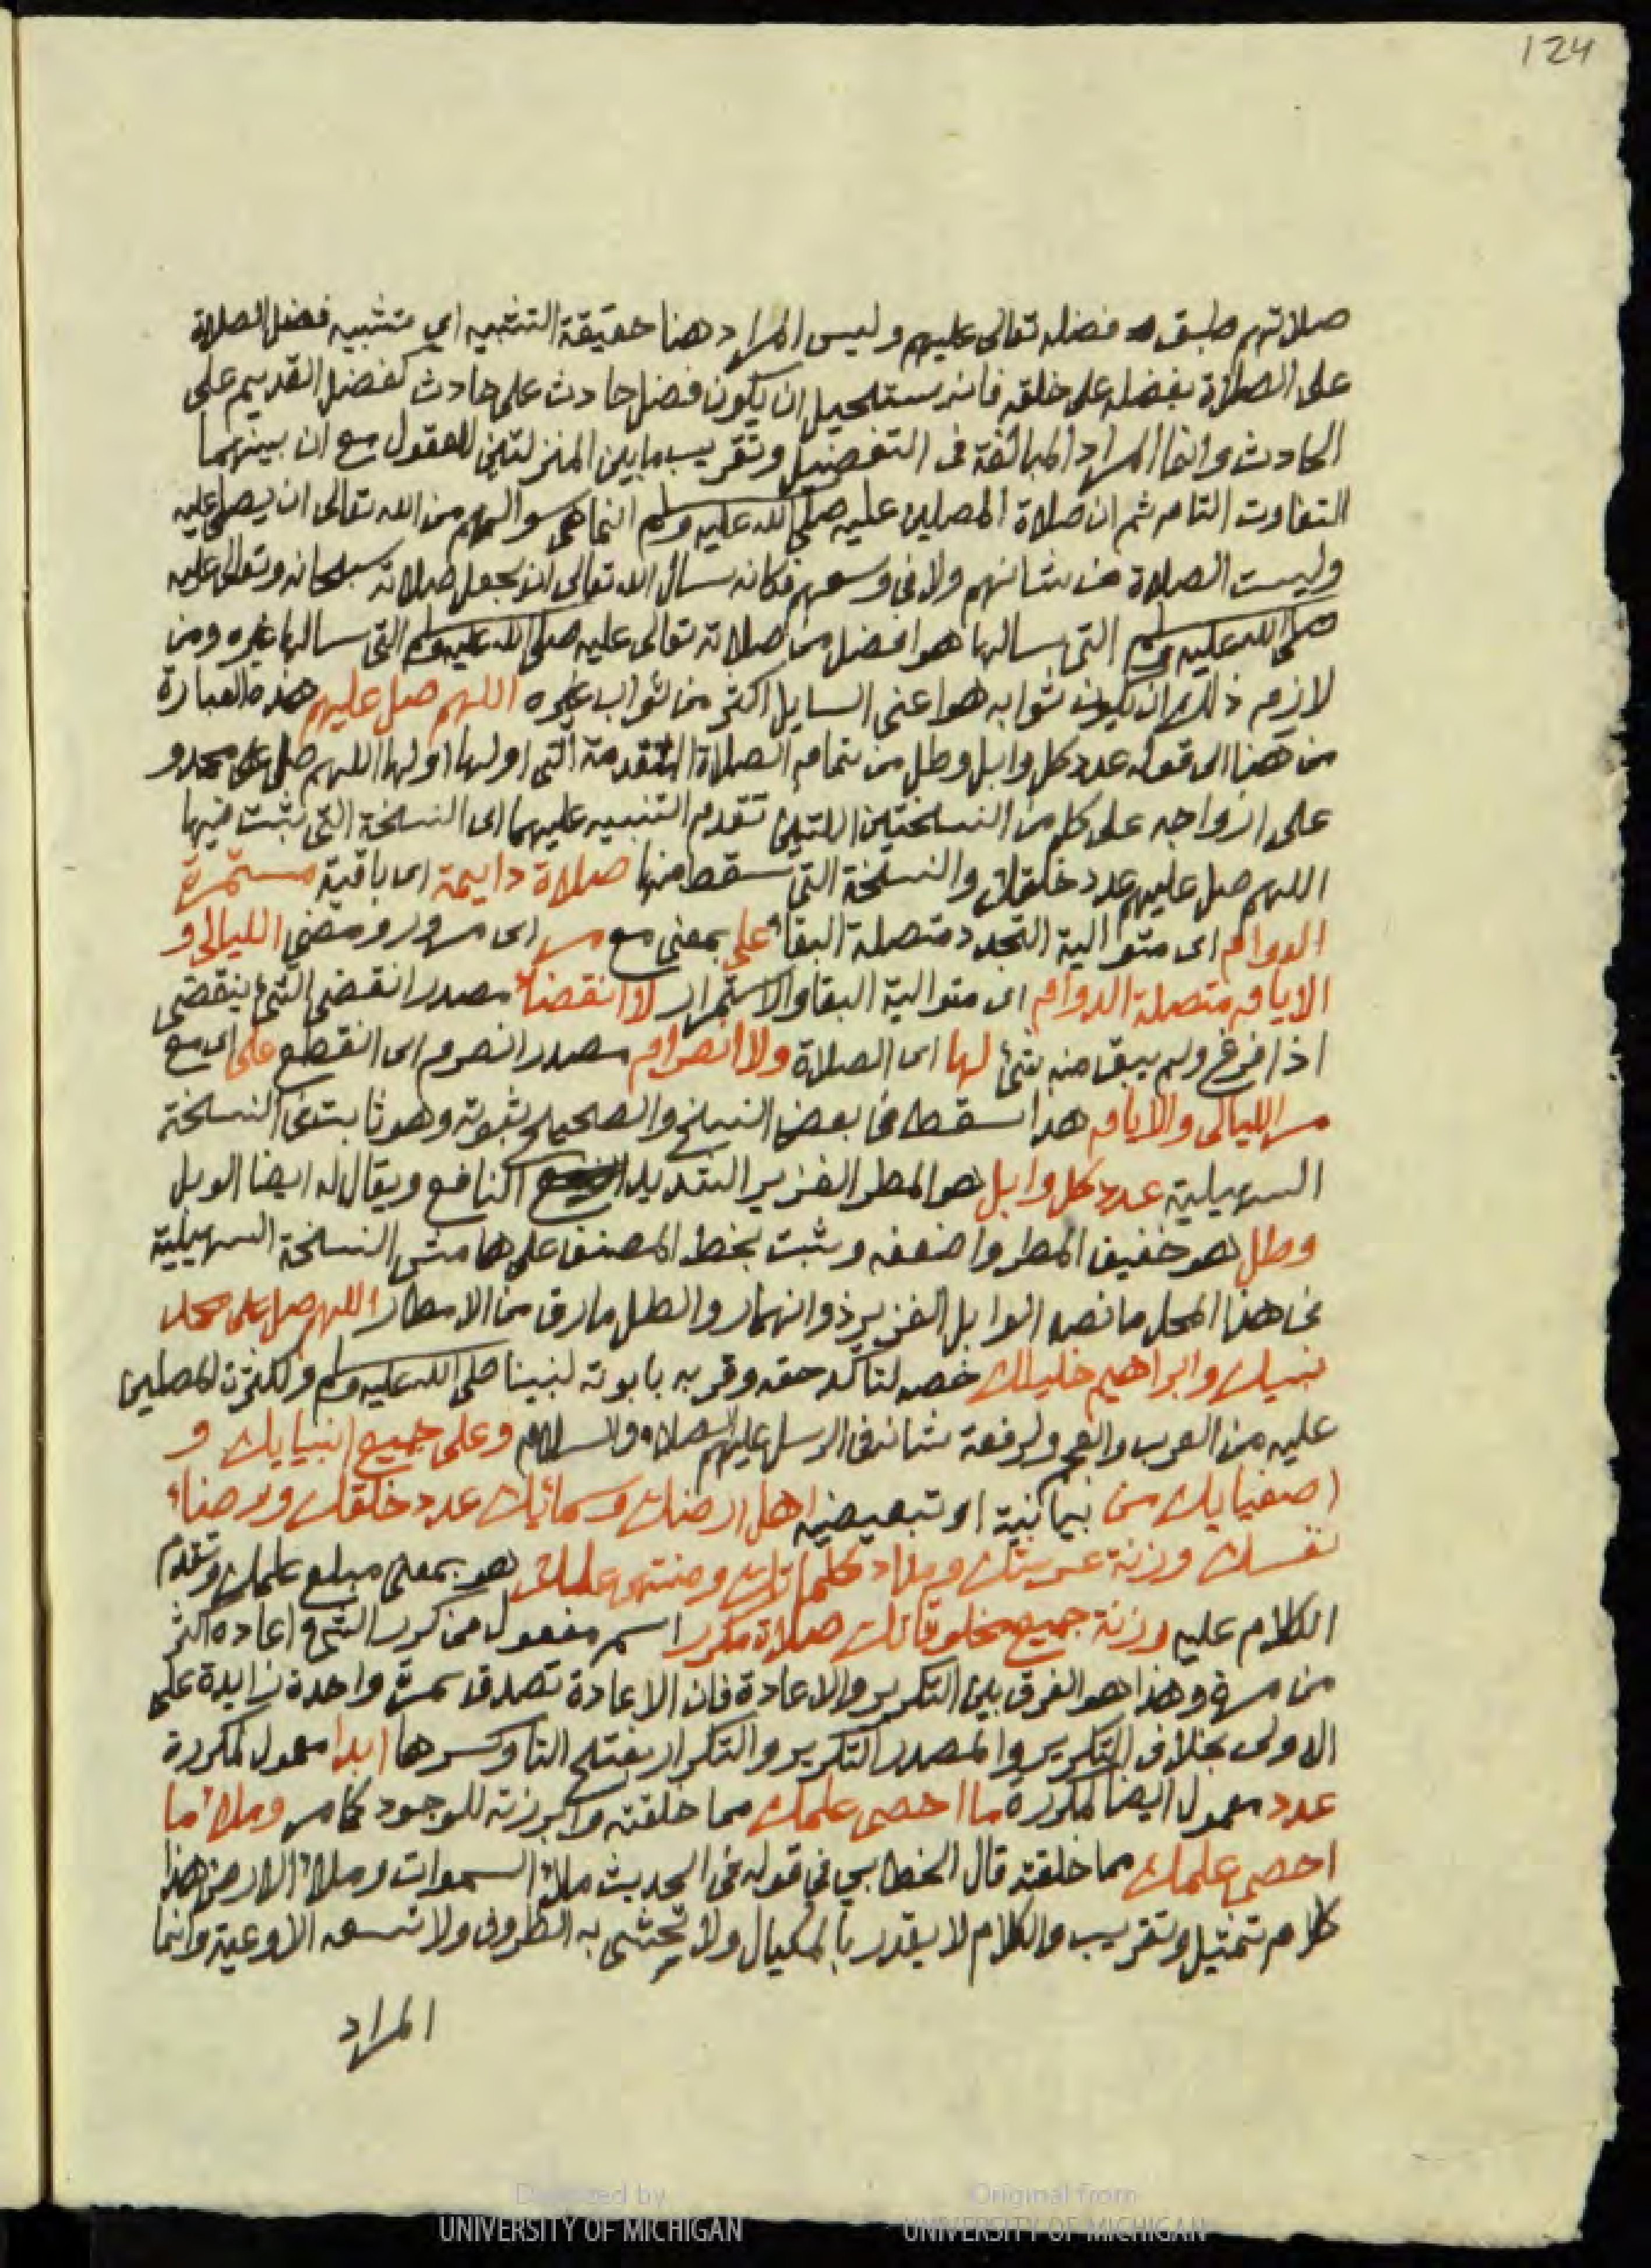 124
صلاتهم طبق فضله تعالى عليهم وليس المراد هنا حقيقة التشبيه اي تشبيه فضل الصلاة
على الصلاة بفضله على خلقه فانه يستحيل ان يكون فضل حادث على حادث كفضل القديم على
الحادث وانما المراد المبالغة فى التفضيل وتقريب ما بين المنزلتين للعقول مع ان بينهما
التفاوت التام ثم ان صلاة المصلين عليه صلى الله عليه وسلم انما هى سوالهم من الله تعالى ان يصلى عليه
وليست الصلاة من شانهم ولا فى وسعهم فكانه سأل الله تعالى ان يجعل صلاته سبحانه وتعالى عليه
صلى الله عليه وسلم التى سالها هو افضل من صلاته تعالى عليه صلى الله عليه وسلم التى سالها غيره ومن
لازم ذلك ان يكون ثوابه هو اعنى السايل اكثر من ثواب غيره اللهم صل عليهم هذه العبارة
من هنا الى قوله عدد كل وابل وطل من تمام الصلاة المتقدمة التى اولها اولها اللهم صل على محمد و
على ازواجه على كل من النسختين اللتين تقدم التنبيه عليهما اى النسخة التى ثبت فيها
اللهم صل عليهم عدد خلقك والنسخة التى سقط منها صلاة دايمة اى باقية مستمرة
الدوام اى متوالية التجدد متصلة البقاء على بمعنى مع مر اى مرور ومضى الليالى و
الايام متصلة الدوام اى متوالية البقا والاستمرار لا انقضاء مصدر انقضى الشئ ينقضى
اذا فرغ ولم يبق منه شئ لها اى الصلاة ولا انصرام مصدر انصرم اى انقطع على اى مع
مر الليالى والايام هذا سقط فى بعض النسخ والصحيح ثبوته وهو ثابت فى النسخة
السهيلية عدد كل وابل هو المطر الغزير الشديد النافع ويقال له ايضا الوبل
وطل هو خفيف المطر واضعفه وثبت بخط المصنف على هامش النسخة السهيلية
فى هذا المحل ما نصه الوابل الغزير ذو انهمار والطل مارق من الامطار اللهم صل على محمد
نبيك وابراهيم خليلك خصه لتاكد حقه وقربه بابوته لنبينا صلى الله عليه وسلم ولكثرة المصلين
عليه من العرب والعجم ولرفعة شانه فى الرسل عليهم الصلاه والسلام وعلى جميع انبيايك و
اصفيايك من بيانية او تبعيضيه اهل ارضك وسمائك عدد خلقك ورضاء
نفسك وزنة عرشك ومداد كلماتك ومنتهى علمك هو بمعنى مبلغ علمك وتقدم
الكلام عليه وزنة جميع مخلوقاتك صلاة مكررا اسم مفعول من كرر الشئ اعاده اكثر
من مرة وهذا هو الفرق بين التكرير والاعادة فان الاعادة تصدق بمرة واحدة زايدة على
الاولى بخلاف التكرير والمصدر التكرير والتكرار بفتح التا وكسرها ابدا معمول لمكررة
عدد معمول ايضا لمكررة ما احصى علمك مما خلقته وابرزته للوجود كما مر وملأ ما
احصى علمك مما خلقته قال الخطابي فى قوله فى الحديث ملأ السموات وملأ الارض هذا
كلام تمثيل وتقريب والكلام لا يقدر بالمكيال ولا تحشى به الظروف ولا تسعه الاوعية وانما
المراد
Digitized by UNIVERSITY OF MICHIGAN
Original from UNIVERSITY OF MICHIGAN